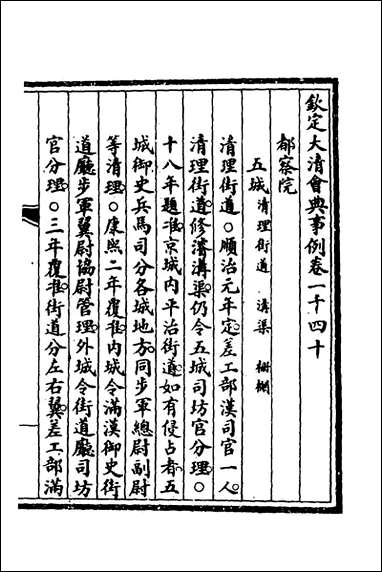 欽定大清會典事例卷一千四十
都察院
五城 清理街道 溝渠 柵欄
清理街道○順治元年定差工部漢司官一人
清理街道修濬溝渠仍令五城司坊官分理○
十八年題准京城內平治街道如有侵占者五
城御史兵馬司分各城地方同步軍總尉副尉
等清理○康熙二年覆准內城令滿漢御史街
道廳步軍翼尉協尉管理外城令街道廳司坊
官分理○三年覆准街道分左右翼差工部滿